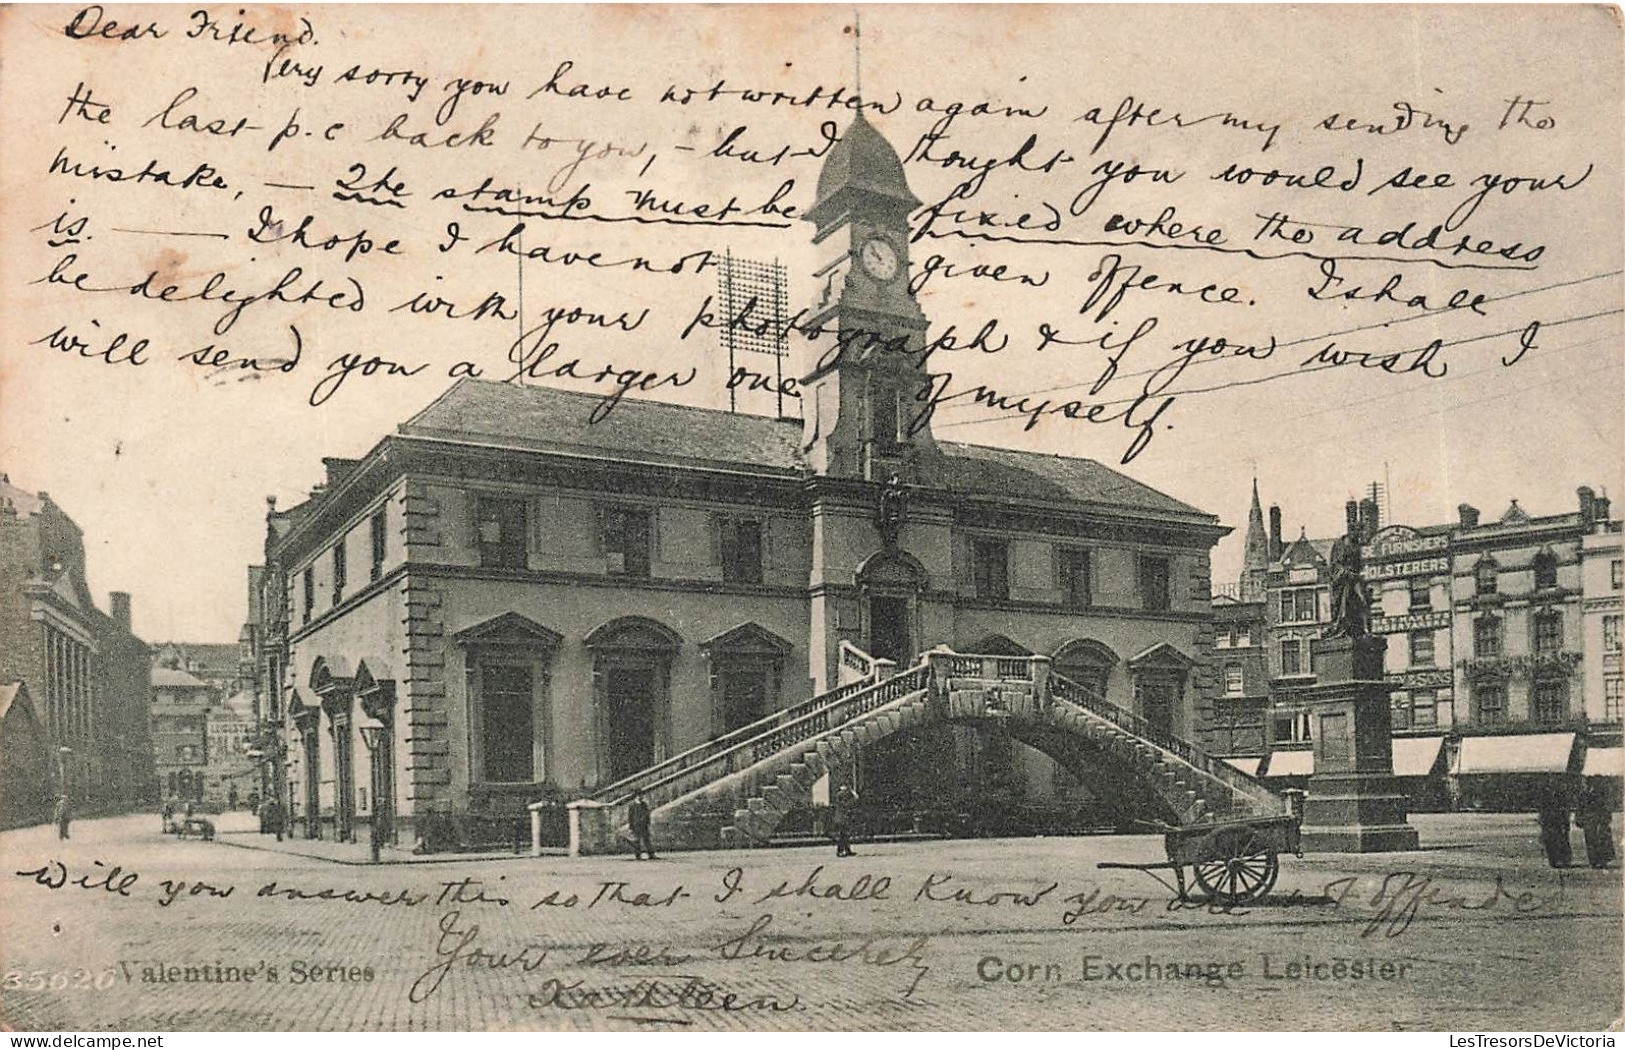 Dear Friend.
Very sorry you have not written again after my sending the
the last p.c back to you, - but I thought you would see your
mistake, — The stamp must be fixed where the address
is. — I hope I have not given offence. I shall
be delighted with your photograph & if you wish I
will send you a larger one of myself.
SE FURNISHERS
HOLSTERERS
& SONS
Will you answer this so that I shall know you are not offended
Your ever Sincerely
Kathleen.
35626 Valentine's Series
Corn Exchange Leicester
LesTresorsDeVictoria